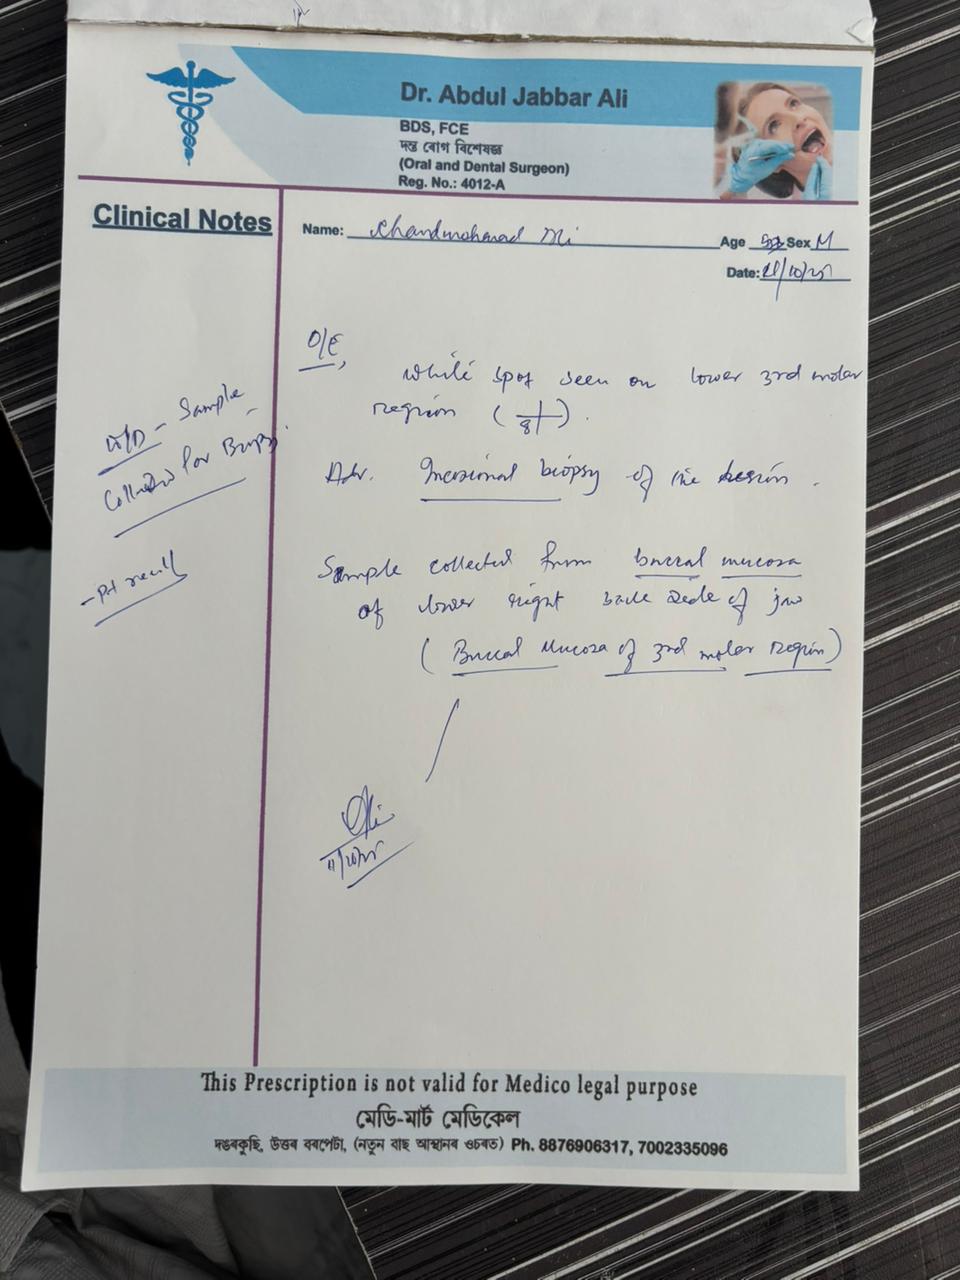 Dr. Abdul Jabbar Ali
BDS, FCE
দন্ত ৰোগ বিশেষজ্ঞ
(Oral and Dental Surgeon)
Reg. No.: 4012-A
Clinical Notes
Name: Chandmohamad Ali
Age Sex M
Date: /10/25
O/E,
White spot seen on lower 3rd molar
region ( 8 ).
Adv. Incisional biopsy of the lesion.
Sample collected from buccal mucosa
of lower right back side of jaw
(Buccal Mucosa of 3rd molar region)
W/D - Sample
Collected for Biopsy.
11/10/25
This Prescription is not valid for Medico legal purpose
মেডি-মাৰ্ট মেডিকেল
দঙৰকুছি, উত্তৰ বৰপেটা, (নতুন বাছ আস্থানৰ ওচৰত) Ph. 8876906317, 7002335096